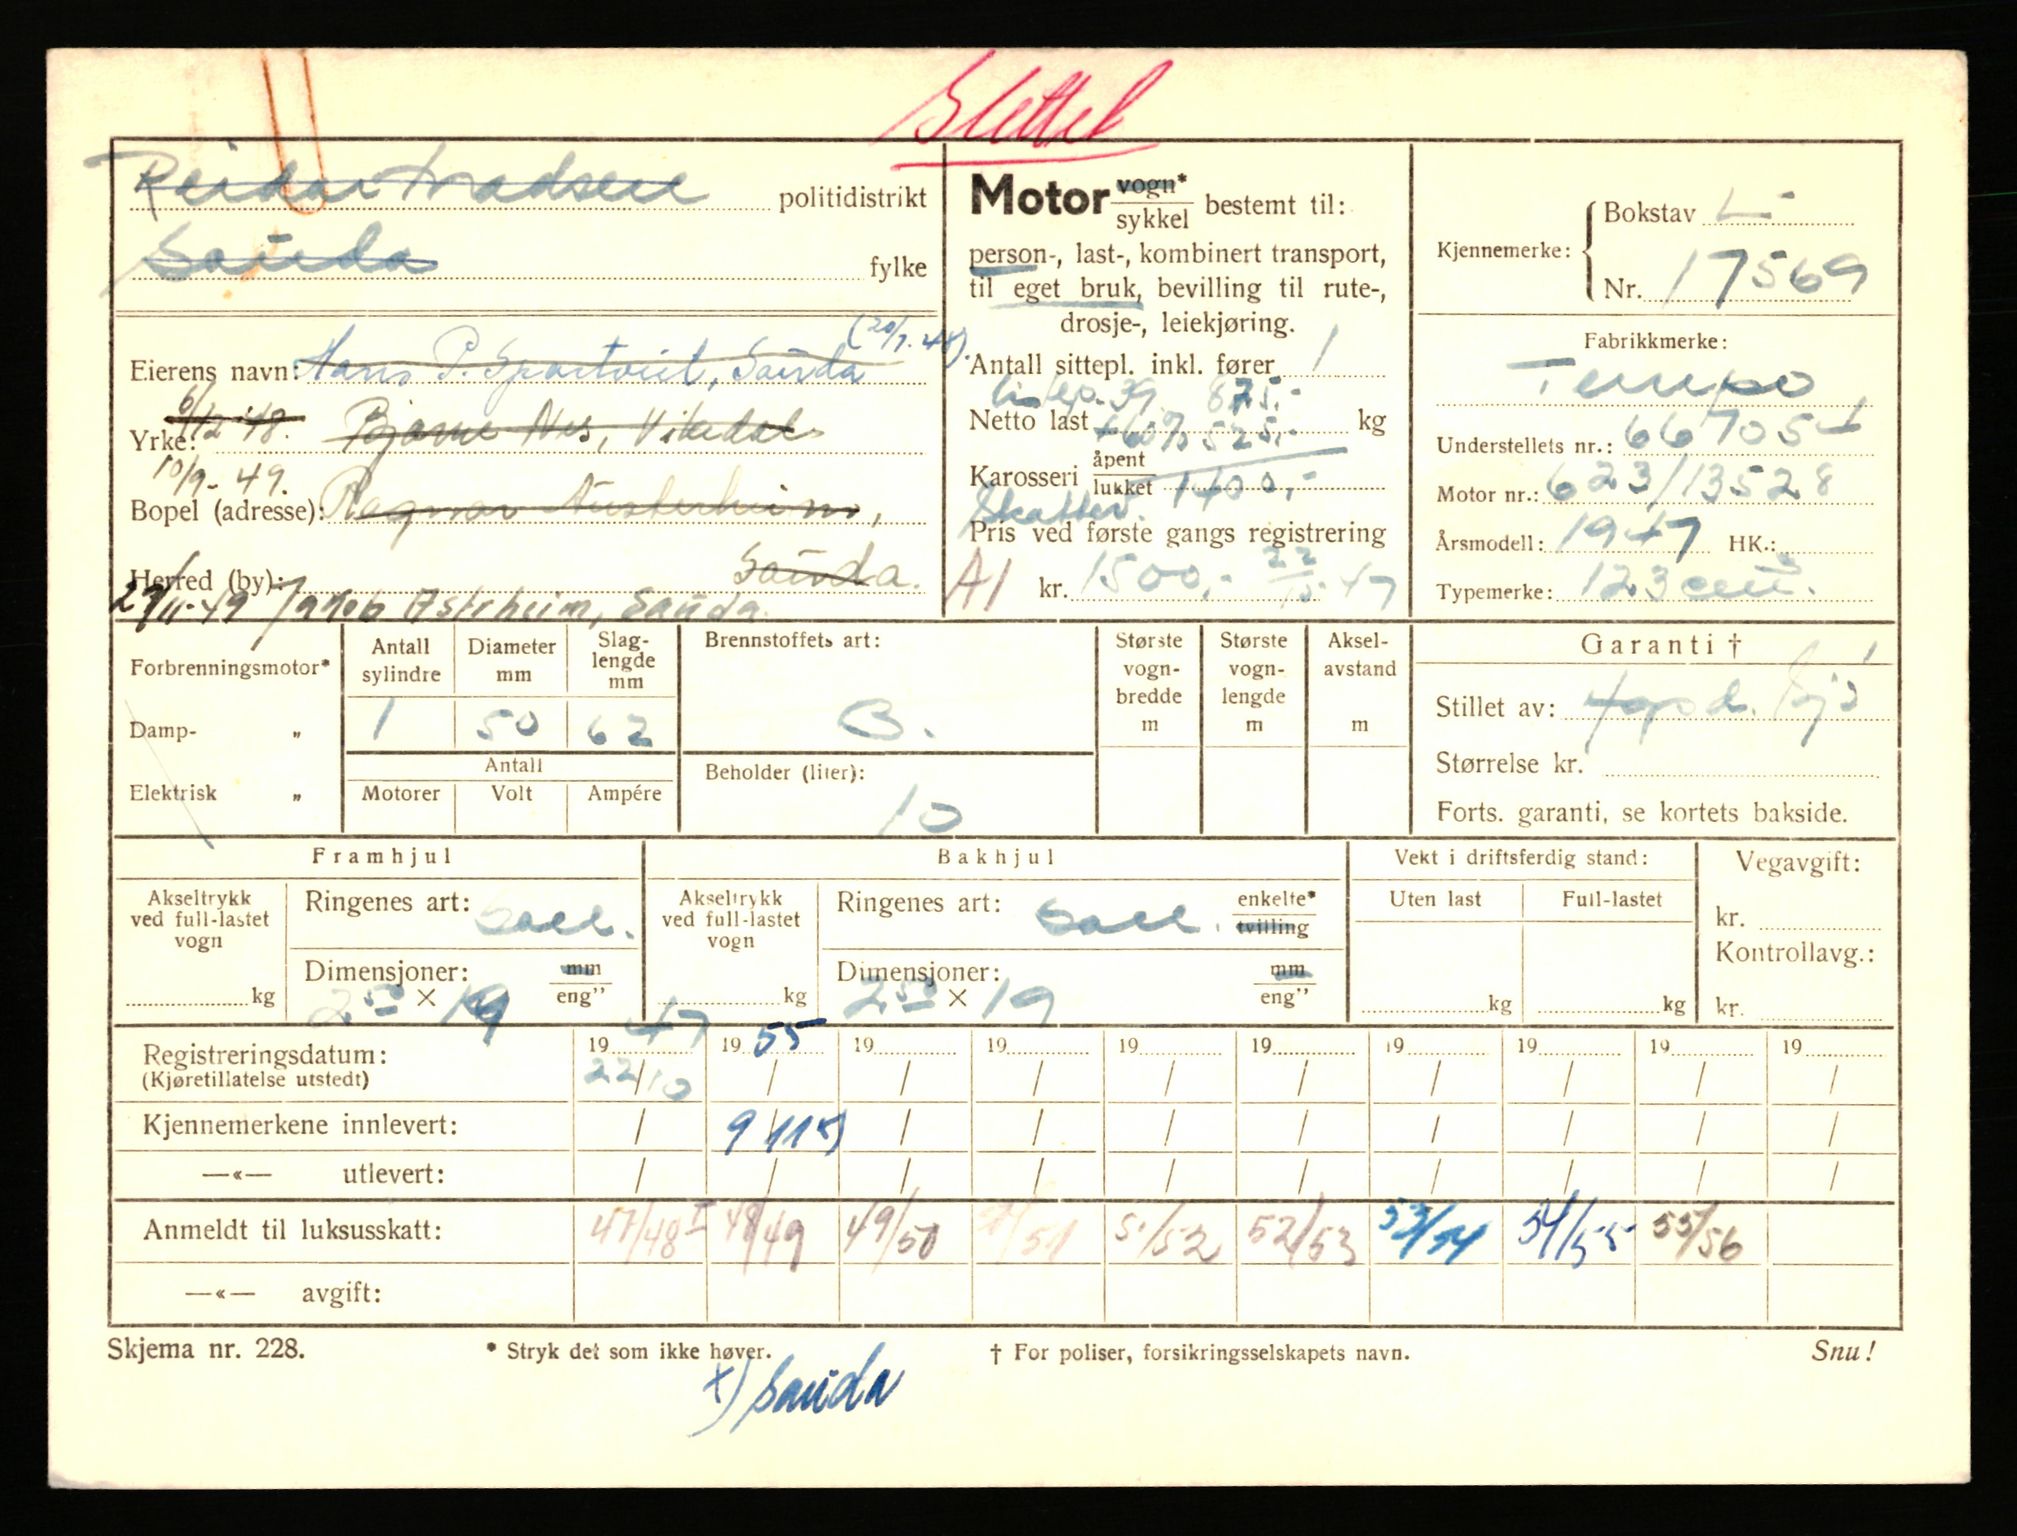 Slettet
Reidar Madsen politidistrikt
Sauda fylke
Motor vogn* sykkel bestemt til:
person-, last-, kombinert transport,
til eget bruk, bevilling til rute-,
drosje-, leiekjøring.
Kjennemerke: Bokstav L
Nr. 17569
Eierens navn: Hans P. Sauda (20/7. 48).
6/12 48.
Yrke: Bjarne Nes, Vikedal
10/9- 49.
Bopel (adresse): Ragnar Austerheim,
Herred (by): Sauda.
29/11-49 Jakob Østrheim, Sauda.
Antall sittepl. inkl. fører 1
Listep. 39 875,-
Netto last + 60% 525,- kg
Karosseri åpent lukket 1400,-
Skattev.
Pris ved første gangs registrering
A1 kr. 1500,- 22/10 47
Fabrikkmerke:
Tempo
Understellets nr.: 667054
Motor nr.: 623/13528
Årsmodell: 1947 HK.:
Typemerke: 123 cm³.
Forbrenningsmotor*
Damp- „
Elektrisk „
Antall sylindre 1
Diameter mm 50
Slag- lengde mm 62
Antall
Motorer Volt Ampére
Brennstoffets art:
B.
Beholder (liter):
10
Største vogn- bredde m
Største vogn- lengde m
Aksel- avstand m
Garanti †
Stillet av:
Størrelse kr.
Forts. garanti, se kortets bakside.
Framhjul
Akseltrykk ved full-lastet vogn
kg
Ringenes art: Ball.
Dimensjoner: mm
2 50 × 19 eng”
Bakhjul
Akseltrykk ved full-lastet vogn
kg
Ringenes art: Ball. enkelte* tvilling
Dimensjoner: mm
2 50 × 19 eng”
Vekt i driftsferdig stand:
Uten last Full-lastet
kg kg
Vegavgift:
kr.
Kontrollavg.:
kr.
Registreringsdatum: 19 47 19 55 19 19 19 19 19 19 19 19
(Kjøretillatelse utstedt) 22/10 / / / / / / / / /
Kjennemerkene innlevert: / 9/11 / / / / / / / /
—«— utlevert: / / / / / / / / / /
Anmeldt til luksusskatt: 47/48 I 48/49 49/50 /51 51/52 52/53 53/54 54/55 55/56
—«— avgift:
Skjema nr. 228.
* Stryk det som ikke høver.
† For poliser, forsikringsselskapets navn.
Snu!
x) Sauda